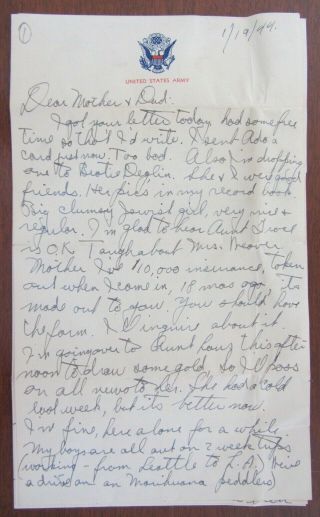 ①
1/19/44.
UNITED STATES ARMY
Dear Mother & Dad:
I got your letter today, had some free
time so that I'd write. I sent Ado a
card just now. Too bad. Also I'm dropping
one to Beatie Deglin. She & I were good
friends. Her pic's in my record book
Big clumsy Jewish girl, very nice &
regular. I'm glad to hear Aunt
is O.K. Tough about Mrs. Weaver
Mother I've $10,000 insurance, taken
out when I came in, 18 mos ago, its
made out to you. You should have
the form. I'll inquire about it.
I'm going over to Aunt this after
noon to draw some gold. So I'll pass
on all news to her. She had a cold
last week, but its better now.
I'm fine, here alone for a while
My boys are all out on 2 week trips
(working - from Seattle to L.A.) Have
a drive on, on Marihuana peddlers